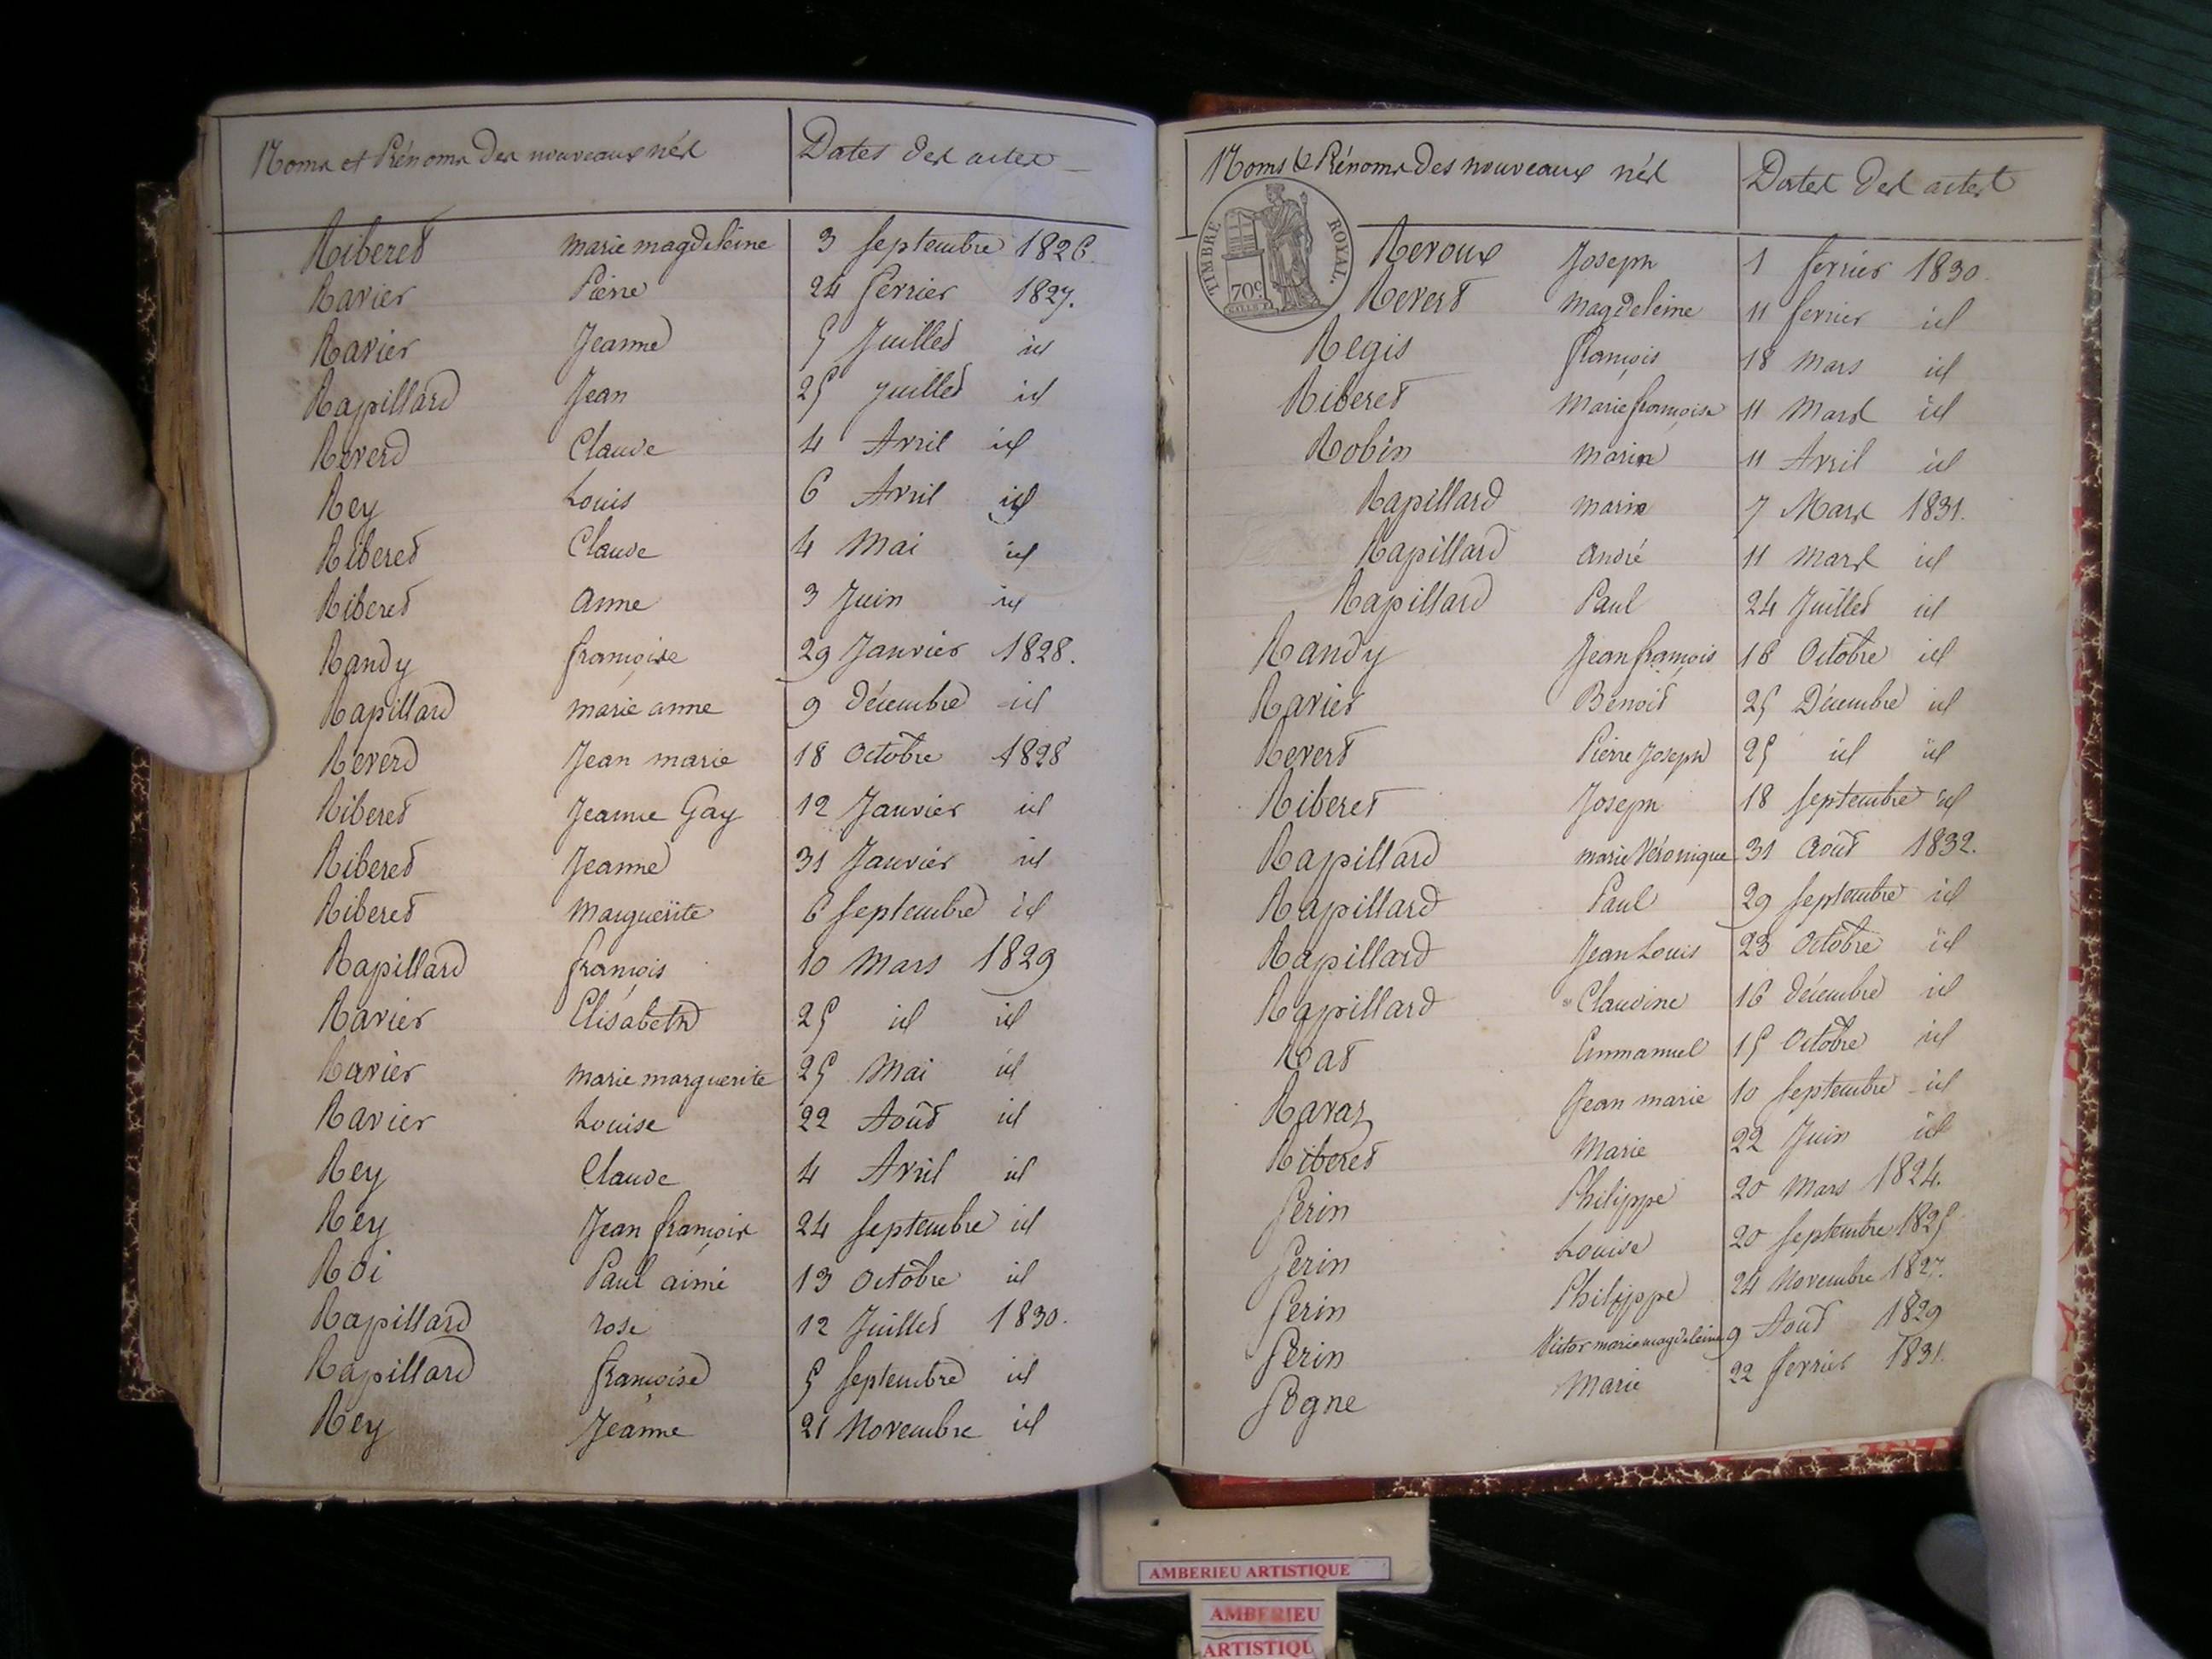 Noms et Prénoms des nouveaux nés Dates des actes
Riberet marie magdeleine 3 septembre 1826.
Ravier Pierre 24 fevrier 1827.
Ravier Jeanne 5 Juillet id
Rapillard Jean 25 juillet id
Reverd Claude 4 Avril id
Rey Louis 6 Avril id
Riberet Claude 4 Mai id
Riberet Anne 3 Juin id
Randy françoise 29 Janvier 1828.
Rapillard marie anne 9 décembre id
Reverd Jean marie 18 Octobre 1828
Riberet Jeanne Gay 12 Janvier id
Riberet Jeanne 31 Janvier id
Riberet Marguerite 6 septembre id
Rapillard françois 10 Mars 1829
Ravier Elisabeth 25 id id
Ravier Marie marguerite 25 Mai id
Ravier Louise 22 Août id
Rey Claude 4 Avril id
Rey Jean françois 24 septembre id
Roi Paul aimé 13 Octobre id
Rapillard rose 12 Juillet 1830.
Rapillard françoise 5 septembre id
Rey Jeanne 21 Novembre id
Noms & Prénoms des nouveaux nés Dates des actes
TIMBRE ROYAL.
70c
Reroux Joseph 1 fevrier 1830.
Revert Magdeleine 11 fevrier id
Regis françois 18 Mars id
Riberet Marie françoise 11 Mars id
Robin Marie 11 Avril id
Rapillard Marie 7 Mars 1831.
Rapillard André 11 Mars id
Rapillard Paul 24 Juillet id
Randy Jean françois 18 Octobre id
Ravier Benoit 25 Décembre id
Revert Pierre Joseph 25 id id
Riberet Joseph 18 septembre id
Rapillard marie Véronique 31 Août 1832.
Rapillard Paul 29 septembre id
Rapillard Jean Louis 23 Octobre id
Rapillard Claudine 16 décembre id
Rat Emmanuel 15 Octobre id
Ravaz Jean marie 10 septembre id
Riberet Marie 22 Juin id
Serin Philippe 20 Mars 1824.
Serin Louise 20 septembre 1825
Serin Philippe 24 Novembre 1827.
Serin Victor marie magdeleine 9 Août 1829
Sogne Marie 22 fevrier 1831.
AMBERIEU ARTISTIQUE
AMBERIEU
ARTISTIQU